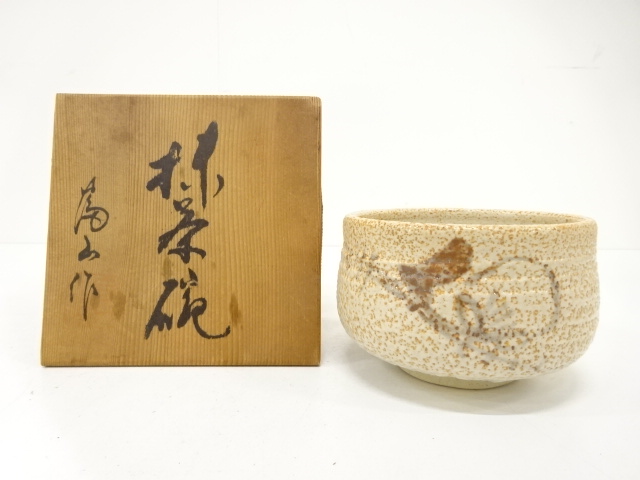 抹茶碗
萬山作